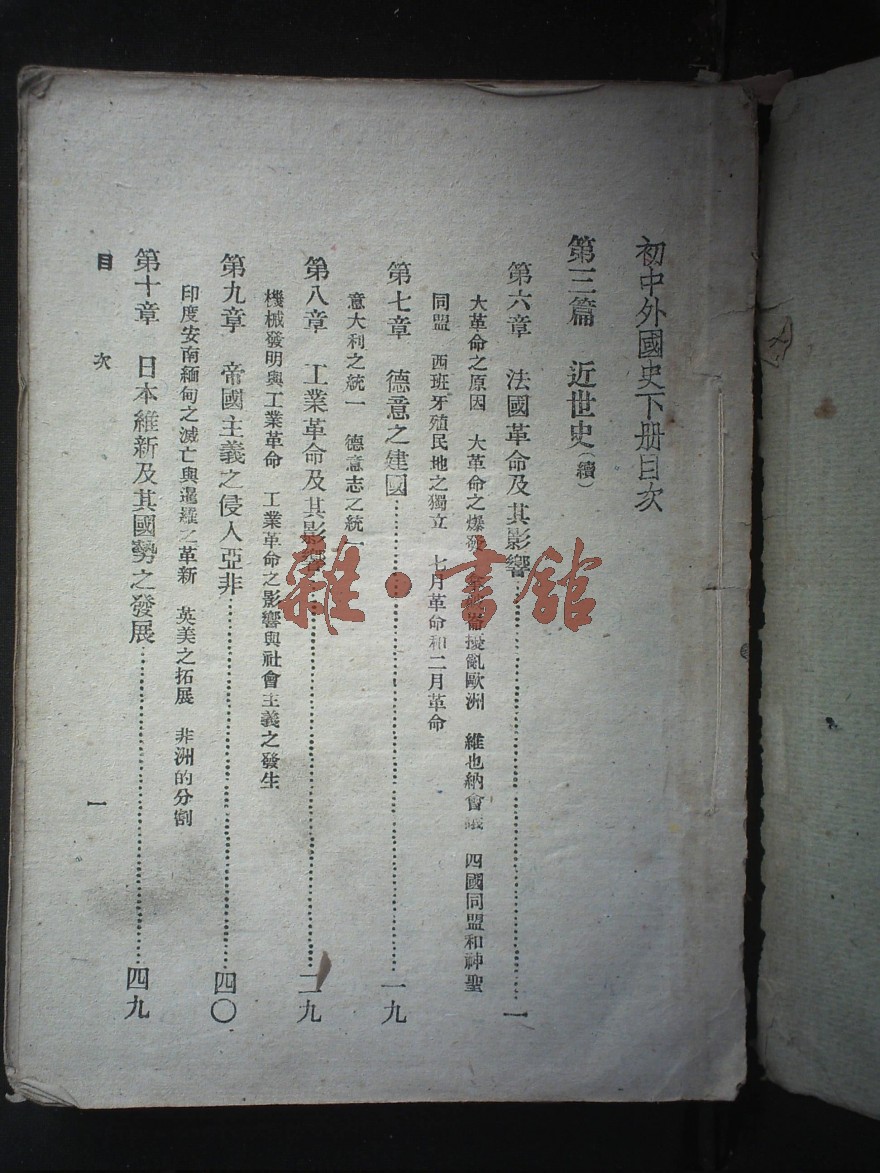 初中外國史下册目次
第三篇　近世史(續)
第六章　法國革命及其影響……一
大革命之原因　大革命之爆發　擾亂歐洲　維也納會議　四國同盟和神聖
同盟　西班牙殖民地之獨立　七月革命和二月革命
第七章　德意之建國……一九
意大利之統一　德意志之統一
第八章　工業革命及其影響……二九
機械發明與工業革命　工業革命之影響與社會主義之發生
第九章　帝國主義之侵入亞非……四〇
印度安南緬甸之滅亡與暹羅之革新　英美之拓展　非洲的分割
第十章　日本維新及其國勢之發展……四九
目　次　一
雜·書館